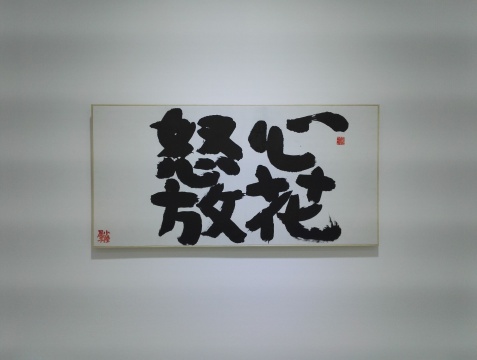 心花
怒放